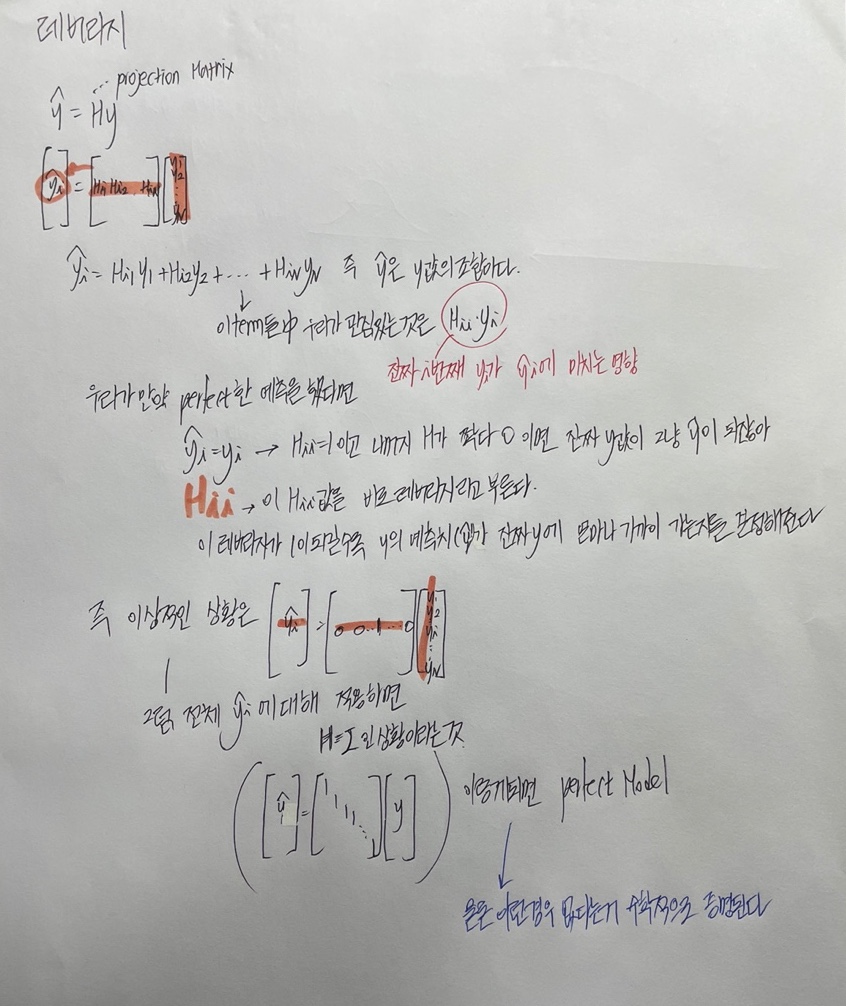 레버리지
... projection Matrix
ŷ = Hy
[ŷi] = [Hi1 Hi2 ... HiN] [y1 y2 ⋮ yN]
ŷi = Hi1y1 + Hi2y2 + ... + HiNyN 즉 ŷ은 y값의 조합이다.
이 term들中 우리가 관심있는것은 Hii·yi
진짜 i번째 yi가 ŷi에 미치는 영향
우리가 만약 perfect한 예측을 했다면
ŷi = yi → Hii=1이고 나머지 H가 싹다 0이면 진짜 y값이 그냥 ŷ이 되잖아
Hii → 이 Hii값을 바로 레버리지라고 부른다.
이 레버리지가 1이 되갈수록 y의 예측치(ŷ)가 진짜 y에 얼마나 가까이 가는지를 결정해준다
즉 이상적인 상황은 [ŷi] = [0 0..1...0] [y1 y2 yi ⋮ yN]
그럼, 전체 ŷi에 대해 적용하면
H=I인 상황이라는 것
([ŷ] = [1 1 1 1 ⋱ 1] [y]) 이렇게되면 perfect Model
물론 이런경우 없다는거 수학적으로 증명된다